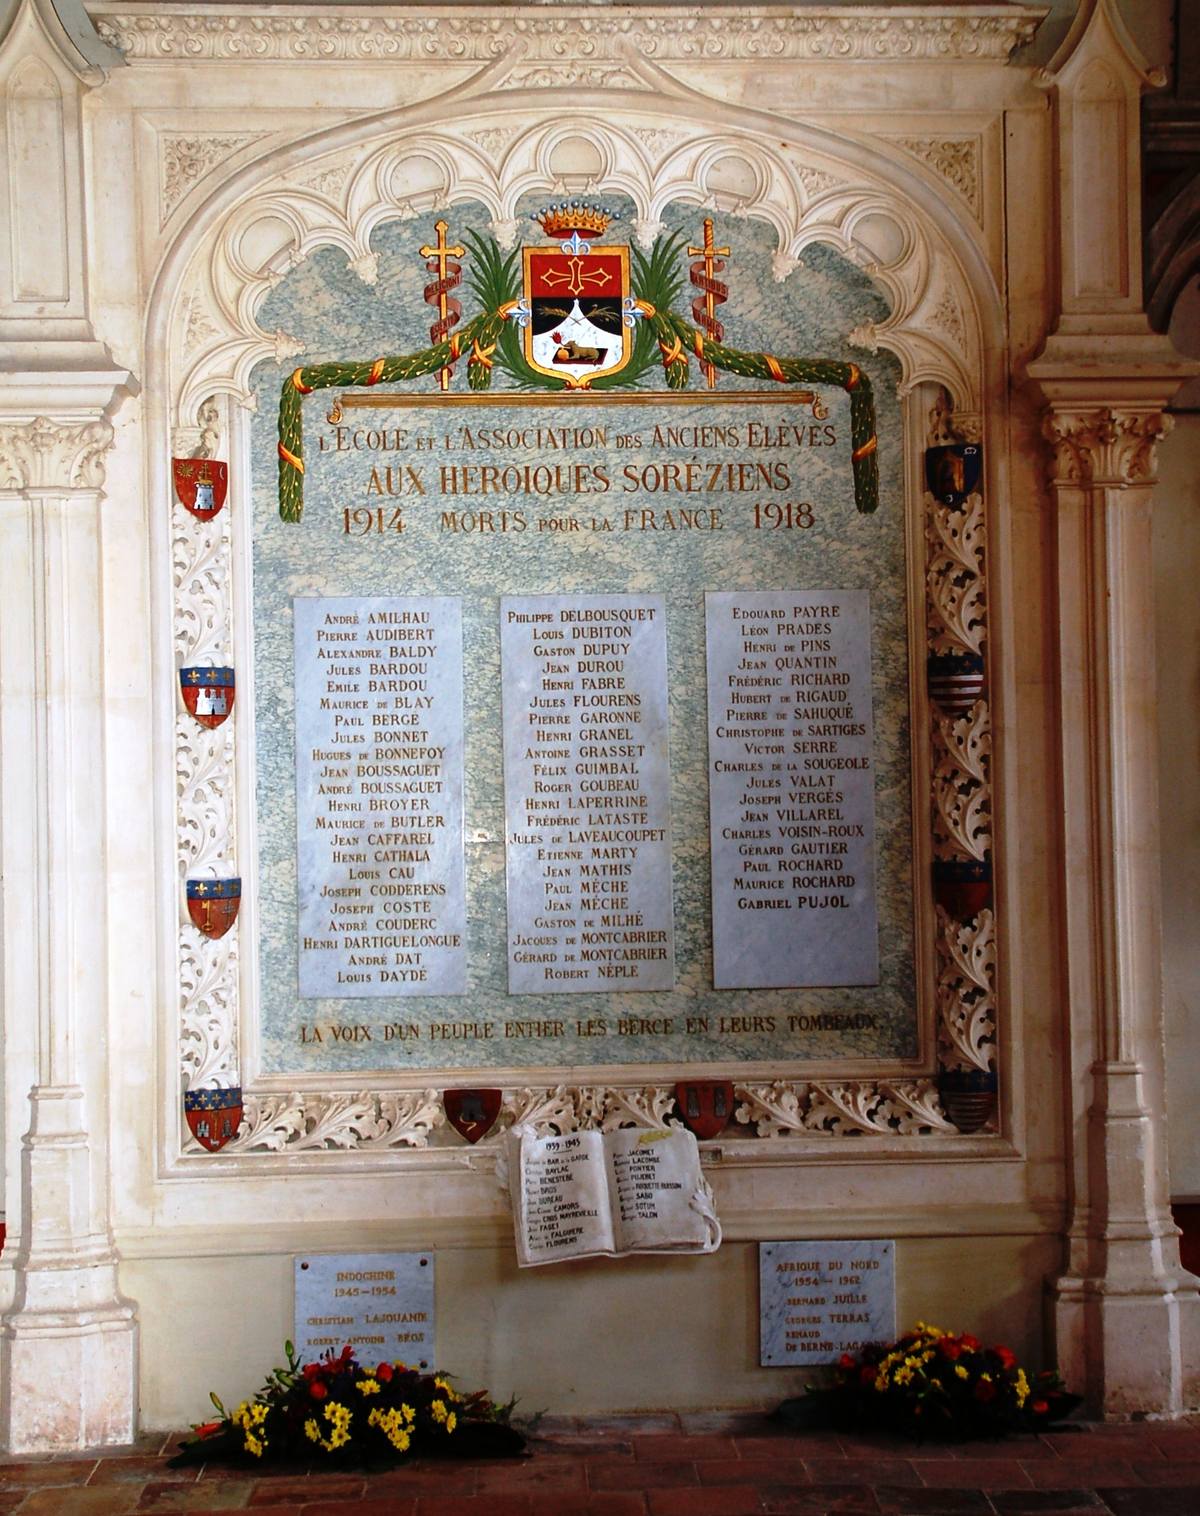 L'ECOLE ET L'ASSOCIATION DES ANCIENS ELÈVES
AUX HEROÏQUES SORÉZIENS
1914 MORTS POUR LA FRANCE 1918
ANDRÉ AMILHAU
PIERRE AUDIBERT
ALEXANDRE BALDY
JULES BARDOU
EMILE BARDOU
MAURICE DE BLAY
PAUL BERGÉ
JULES BONNET
HUGUES DE BONNEFOY
JEAN BOUSSAGUET
ANDRÉ BOUSSAGUET
HENRI BROYER
MAURICE DE BUTLER
JEAN CAFFAREL
HENRI CATHALA
LOUIS CAU
JOSEPH CODDERENS
JOSEPH COSTE
ANDRÉ COUDERC
HENRI DARTIGUELONGUE
ANDRÉ DAT
LOUIS DAYDÉ
PHILIPPE DELBOUSQUET
LOUIS DUBITON
GASTON DUPUY
JEAN DUROU
HENRI FABRE
JULES FLOURENS
PIERRE GARONNE
HENRI GRANEL
ANTOINE GRASSET
FÉLIX GUIMBAL
ROGER GOUBEAU
HENRI LAPERRINE
FRÉDÉRIC LATASTE
JULES DE LAVEAUCOUPET
ETIENNE MARTY
JEAN MATHIS
PAUL MÈCHE
JEAN MÈCHE
GASTON DE MILHÉ
JACQUES DE MONTCABRIER
GÉRARD DE MONTCABRIER
ROBERT NÈPLE
EDOUARD PAYRE
LÉON PRADES
HENRI DE PINS
JEAN QUANTIN
FRÉDÉRIC RICHARD
HUBERT DE RIGAUD
PIERRE DE SAHUQUÉ
CHRISTOPHE DE SARTIGES
VICTOR SERRE
CHARLES DE LA SOUGEOLE
JULES VALAT
JOSEPH VERGÉS
JEAN VILLAREL
CHARLES VOISIN-ROUX
GÉRARD GAUTIER
PAUL ROCHARD
MAURICE ROCHARD
GABRIEL PUJOL
LA VOIX D'UN PEUPLE ENTIER LES BERCE EN LEURS TOMBEAUX.
1939-1945
DE BAR DE LA GARDE
BAYLAC
BENESTEBE
BROS
BUREAU
CAMORS
CROS MAYREVIEILLE
FAGET
DE FALGUIERE
FLOURENS
JACOMET
LACOMBE
PONTIER
PUJEBET
DE ROQUETTE BUISSON
SABO
SOTUM
TALON
INDOCHINE
1945-1954
CHRISTIAN LAJOUANIE
ROBERT-ANTOINE BROS
AFRIQUE DU NORD
1954-1962
BERNARD JUILLE
GEORGES TERRAS
RENAUD
DE BERNE-LAGARDE